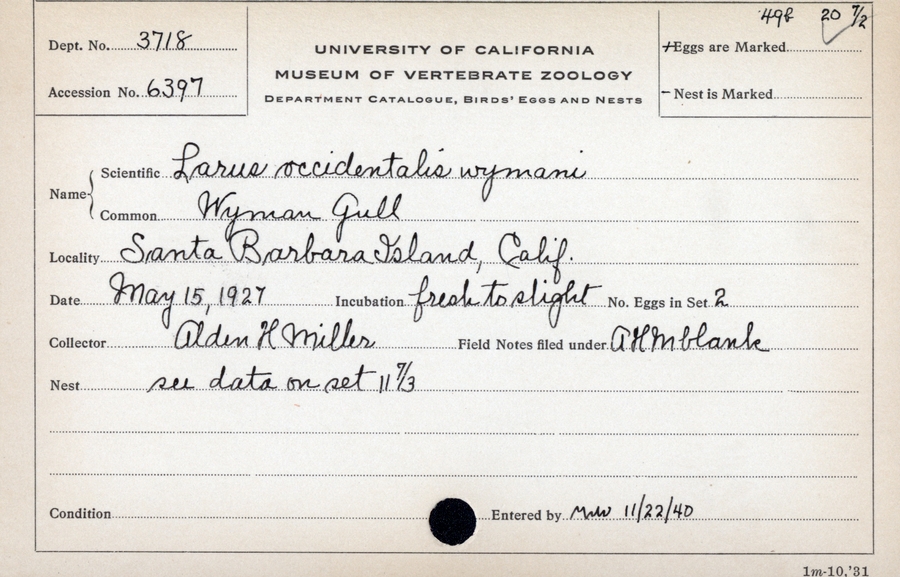 49f 20 7/2
Dept. No. 3718
UNIVERSITY OF CALIFORNIA
+Eggs are Marked
MUSEUM OF VERTEBRATE ZOOLOGY
Accession No. 6397
DEPARTMENT CATALOGUE, BIRDS' EGGS AND NESTS
- Nest is Marked
Name { Scientific Larus occidentalis wymani
Common Wyman Gull
Locality Santa Barbara Island, Calif.
Date May 15, 1927 Incubation fresh to slight No. Eggs in Set 2
Collector Alden H Miller Field Notes filed under AHM blank
Nest see data on set 11 7/3
Condition Entered by 11/22/40
1m-10,'31